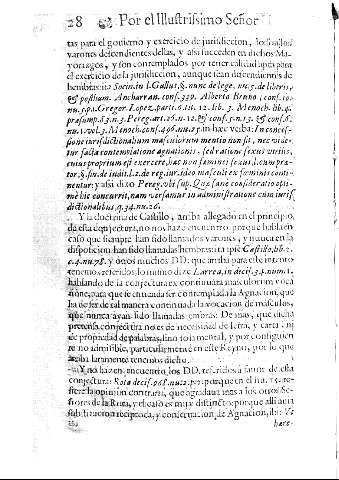 28 Por el Illustrissimo Señor
tas para el govierno y exercicio de jurisdiccion, los
varones descendientes dellas, y assi succeden en dichos Ma-
yorazgos, y son contemplados por tener calidad apta para
el exercicio de la jurisdiccion, aunque sean descendientes de
hembras ita Socin. in l. Gallus, §. nunc de lege. nu. 3. de liberis,
& posthum. Ancharran. conf. 339. Alberto Bruno, conf. 10.
nu. Gregor. Lopez, part. 6. tit. 12. lib. 3. Menoch. lib. 4.
præsump. n. 3. Peregr. art. 26. n. 12. & conf. 5. n. 13. & conf. 6.
nu. 1. vol. 3. Menoch. conf. 406. nu. 25. in hæc verba: In concess-
sione iurisdictionalium masculorum mentio non sit, nec vide-
tur facta contemplatione agnationis, sed ratione sexus virilis,
cuius proprium est exercere, hæc non fæminei sexus l. cum præ-
tor §. fin. de iudit. l. 2. de reg. iur. ideo masculi ex fæmineis conti-
nentur; y assi dixo Pereg. vbi sup. Quæ sanè consideratio opti-
mè hic concurrit, nam versamur in administratione cum iuris-
dictionalibus, q. 34. nu. 26.
Y la doctrina de Castillo, arriba allegado en el principio,
desta conjectura, no nos haze encuentro, porque habla en
caso que siempre han sido llamados varones, y nunca en la
disposicion han sido llamadas hembras ita ipse Castillo, lib. 2.
c. 4. nu. 78. y otros muchos DD. que arriba para este intento
tenemos referidos, lo mismo dize Larrea, in decis. 34. num. 1.
hablando de la conjectura ex continuata masculorum voca-
tione, para que se entienda ser contemplada la Agnacion, que
ha de ser de tal manera continuada la vocacion de másculos,
que nunca ayan sido llamadas embras: De mas, que dicha
pretensa conjectura no es de necessidad de Letra, y
de propiedad de palabras, sino solo mental, y por consiguien-
te no admisible, particularmente en este Reyno, por lo que
claramente tenemos dicho.
Y no hazen encuentro los DD. referidos à favor de esta
conjectura: Rota decis. 968. nu. porque en el nu. 15. re-
fiere la opinion contraria, que agradava mas à los otros Se-
ñores de la Rota, y el caso es muy distincto, porque alli auia
substitucion reciproca, y conservacion de Agnacion, ibi: Vt
hære-